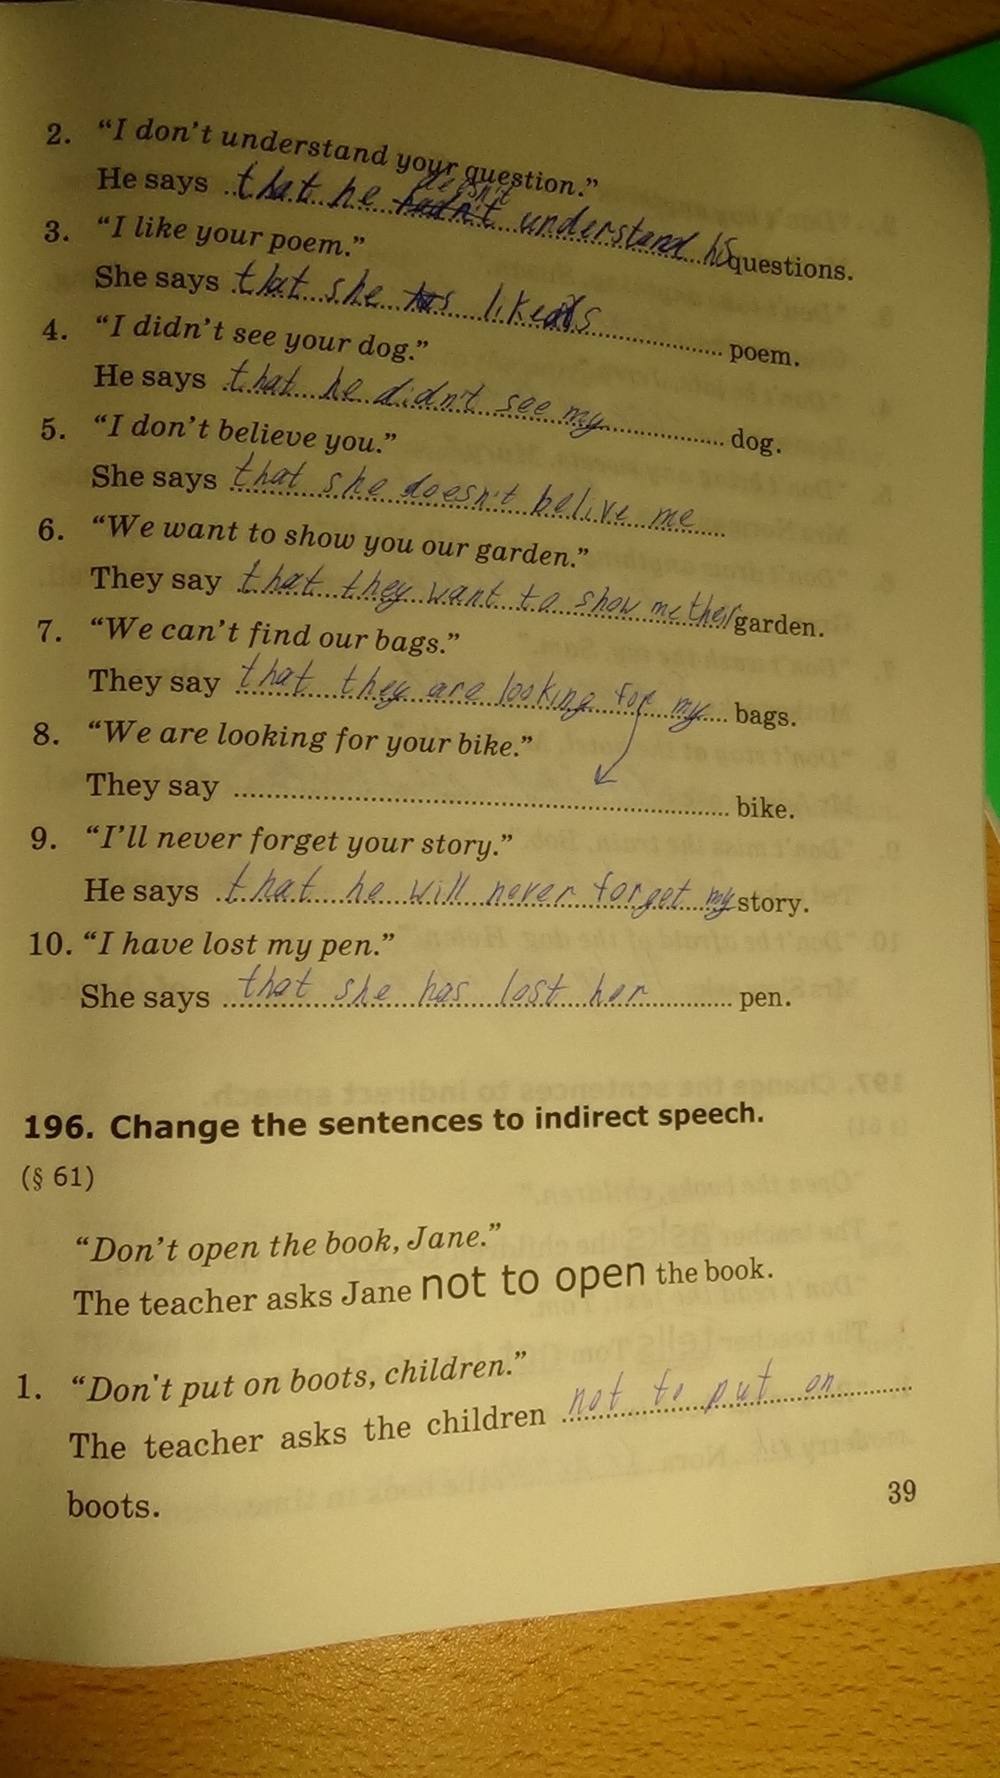 2. “I don’t understand your question.”
doesn't
He says that he hadn't understand his questions.
3. “I like your poem.”
She says that she has likes poem.
4. “I didn’t see your dog.”
He says that he didn't see my dog.
5. “I don’t believe you.”
She says that she doesn't belive me
6. “We want to show you our garden.”
They say that they want to show me their garden.
7. “We can’t find our bags.”
They say that they are looking for my bags.
8. “We are looking for your bike.”
They say bike.
9. “I’ll never forget your story.”
He says that he will never forget my story.
10. “I have lost my pen.”
She says that she has lost her pen.
196. Change the sentences to indirect speech.
(§ 61)
“Don’t open the book, Jane.”
The teacher asks Jane not to open the book.
1. “Don't put on boots, children.”
The teacher asks the children not to put on
boots.
39